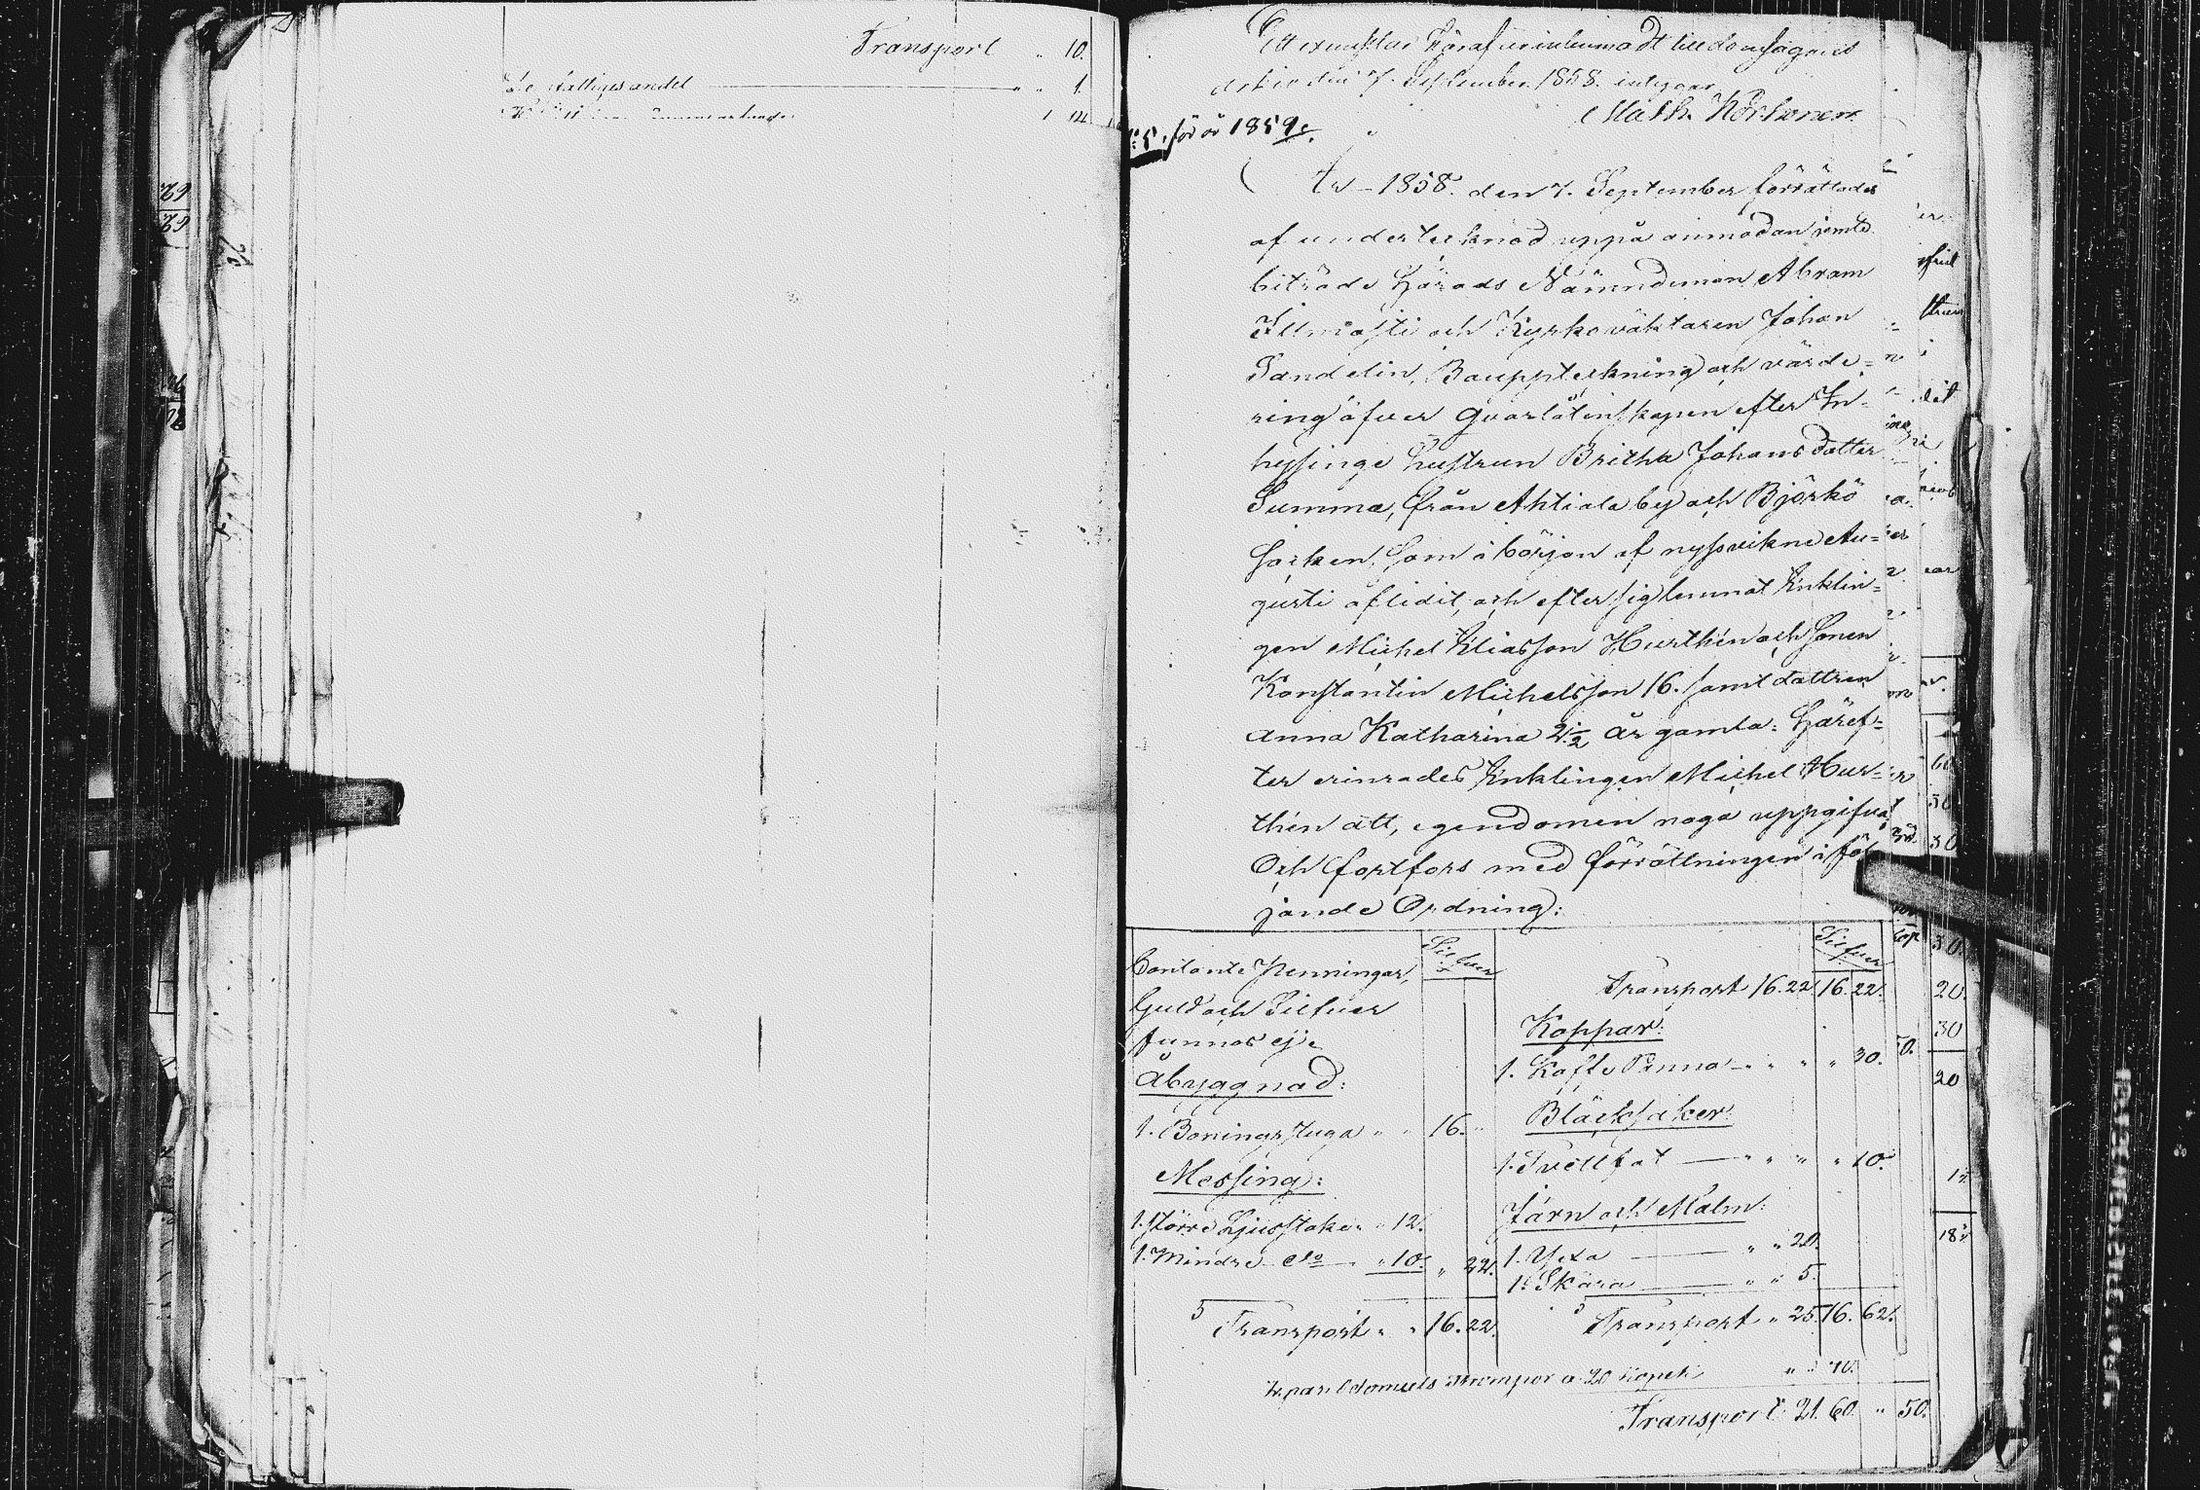 Transport " 10.
do fattiges andel " " 1.
Ett exemplar häraf inlemnadt till domsagans
arkiv den 7. September 1858. intygar
Math. Korhonen.
5. för år 1859.
År 1858. den 7. September förrättades
af undertecknad uppå anmodan jemte
biträde Härads Nämndeman Abram
Illmasti och Kyrkoväktaren Johan
Sandelin, Bouppteckning och värde=
ring öfver Qvarlåtenskapen efter In=
hysinge hustrun Britha Johansdotter
Summa, från Ahtiala by och Björkö
Socken, som i början af nyssvikne Au=
gusti aflidit, och efter sig lemnat Enklin=
gen Michel Eliasson Hurthén och sonen
Konstantin Michelsson 16. samt dottren
Anna Katharina 2½ år gamla: Häref=
ter erinrades Enklingen Michel Hur=
thén att, egendomen noga uppgifva,
Och fortfors med förrättningen i föl
jande Ordning:
Silfver
Contante Penningar,
Guld och Silfver
funnos ej.
Åbyggnad:
1. Boningsstuga " " 16. "
Messing:
1. större Ljusstake " " 12.
1. Mindre do " 10. " 22.
Transport " " 16. 22.
Silfver
Transport 16. 22. 16. 22.
Koppar:
1. Kaffe Panna " " " " 30.
Bläcksaker:
1. Tvättfat " " " " 10.
Järn och Malm:
1. Yxa " " 20.
1. Skära " " 5.
Transport " 25. 16. 62.
par strumpor a 20 kopek " " 40.
Transport 21. 60 " 50.